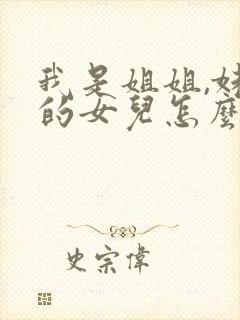 我是姐姐,妹
的女兒怎麼
史宗偉